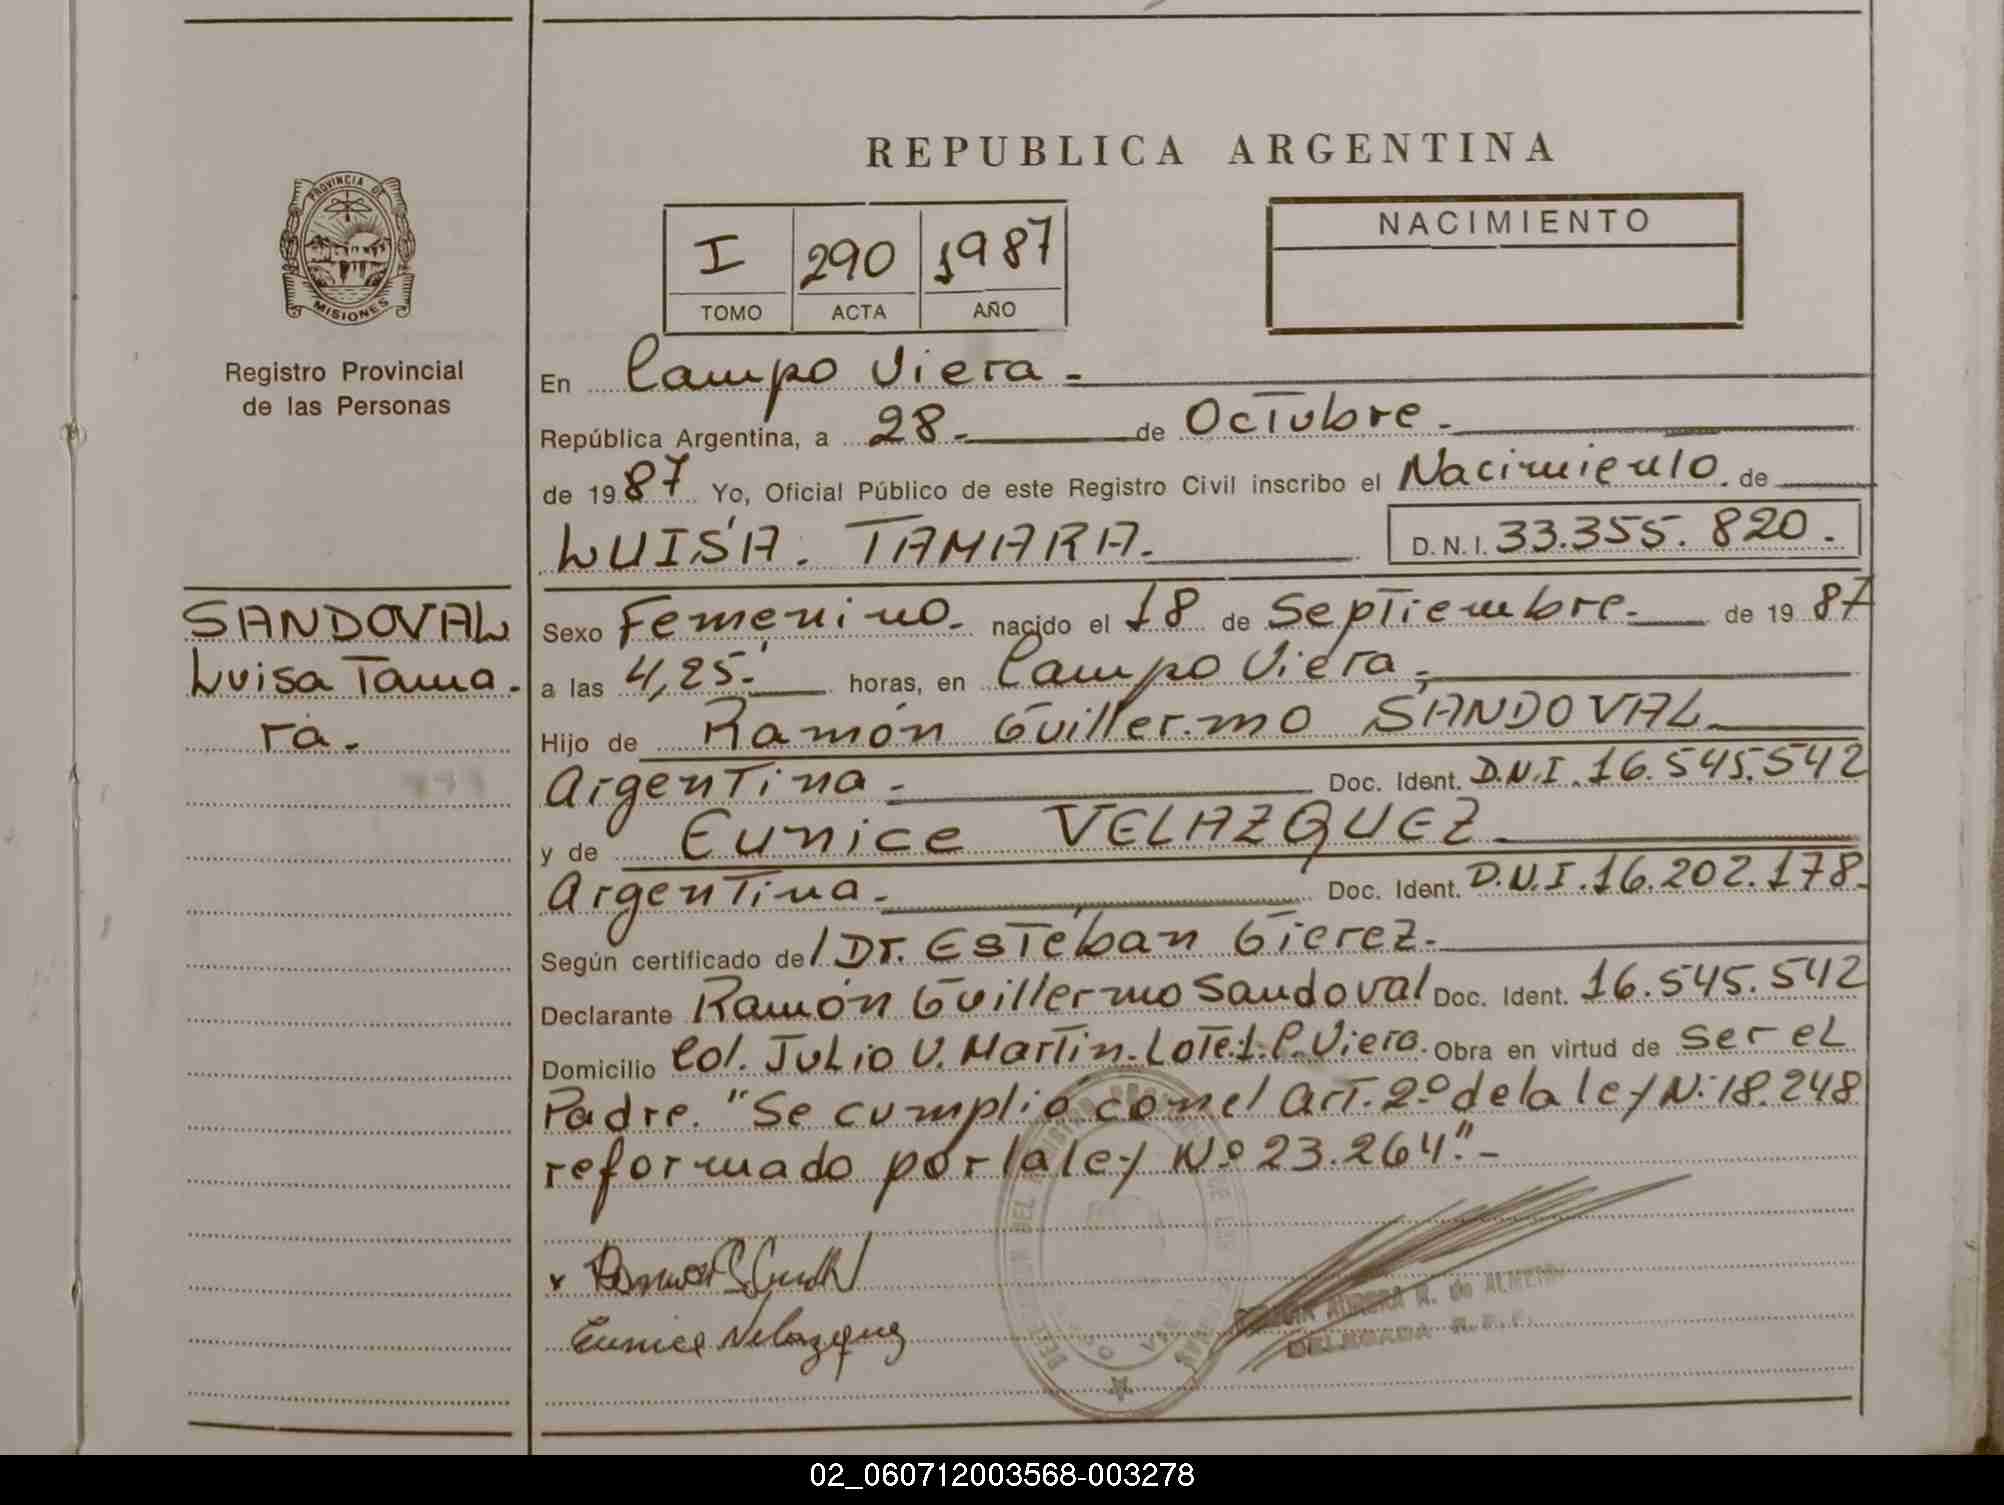 REPUBLICA ARGENTINA
PROVINCIA DE
MISIONES
Registro Provincial
de las Personas
I 290 1987
TOMO ACTA AÑO
NACIMIENTO
En Campo Viera.
República Argentina, a 28. de Octubre.
de 1987 Yo, Oficial Público de este Registro Civil inscribo el Nacimiento. de
LUISA. TAMARA. D.N.I. 33.355.820.
SANDOVAL
Luisa Tama-
ra.
Sexo Femenino. nacido el 18 de Septiembre. de 1987
a las 4,25. horas, en Campo Viera,
Hijo de Ramón Guillermo SANDOVAL
Argentina. Doc. Ident. D.N.I. 16.545.542
y de Eunice VELAZQUEZ
Argentina. Doc. Ident. D.N.I. 16.202.178.
Según certificado del Dr. Estéban Gierez.
Declarante Ramón Guillermo Sandoval Doc. Ident. 16.545.542
Domicilio Col. Julio U. Martin. Lote.1. C. Viera. Obra en virtud de ser el
Padre. "Se cumplió con el Art. 2º de la ley N: 18.248
reformado por la ley Nº 23.264".-
Eunice Velazquez
AURORA R. de ALMEIDA
DELEGADA R.P.P.
02_060712003568-003278